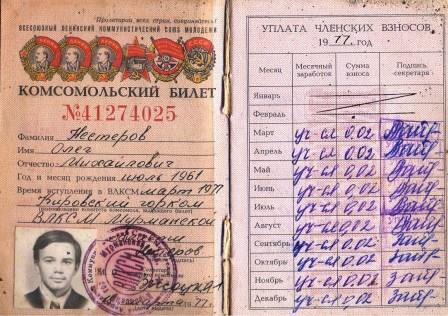 "Пролетарии всех стран, соединяйтесь!"
ВСЕСОЮЗНЫЙ ЛЕНИНСКИЙ КОММУНИСТИЧЕСКИЙ СОЮЗ МОЛОДЕЖИ
КОМСОМОЛЬСКИЙ БИЛЕТ
№41274025
Фамилия Нестеров
Имя Олег
Отчество Михайлович
Год и месяц рождения июль 1961
Время вступления в ВЛКСМ март 1977
Кировский горком
ВЛКСМ Мурманской
Нестеров
марта 77 г.
УПЛАТА ЧЛЕНСКИХ ВЗНОСОВ
1977 год
Месяц Месячный заработок Сумма взноса Подпись секретаря
Январь
Февраль
Март уч-ся 0,02
Апрель уч-ся 0,02
Май уч-ся 0,02
Июнь уч-ся 0,02
Июль уч-ся 0,02
Август уч-ся 0,02
Сентябрь уч-ся 0,02
Октябрь уч-ся 0,02
Ноябрь уч-ся 0,02
Декабрь уч-ся 0,02